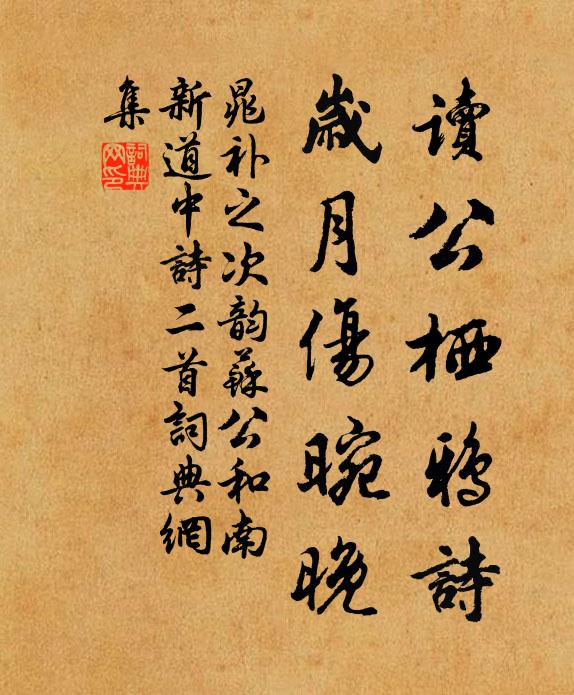 讀公栖鴉詩
歲月傷晼晚
晁补之次韵蘇公和南
新道中詩二首詞典網
集
詞典網印